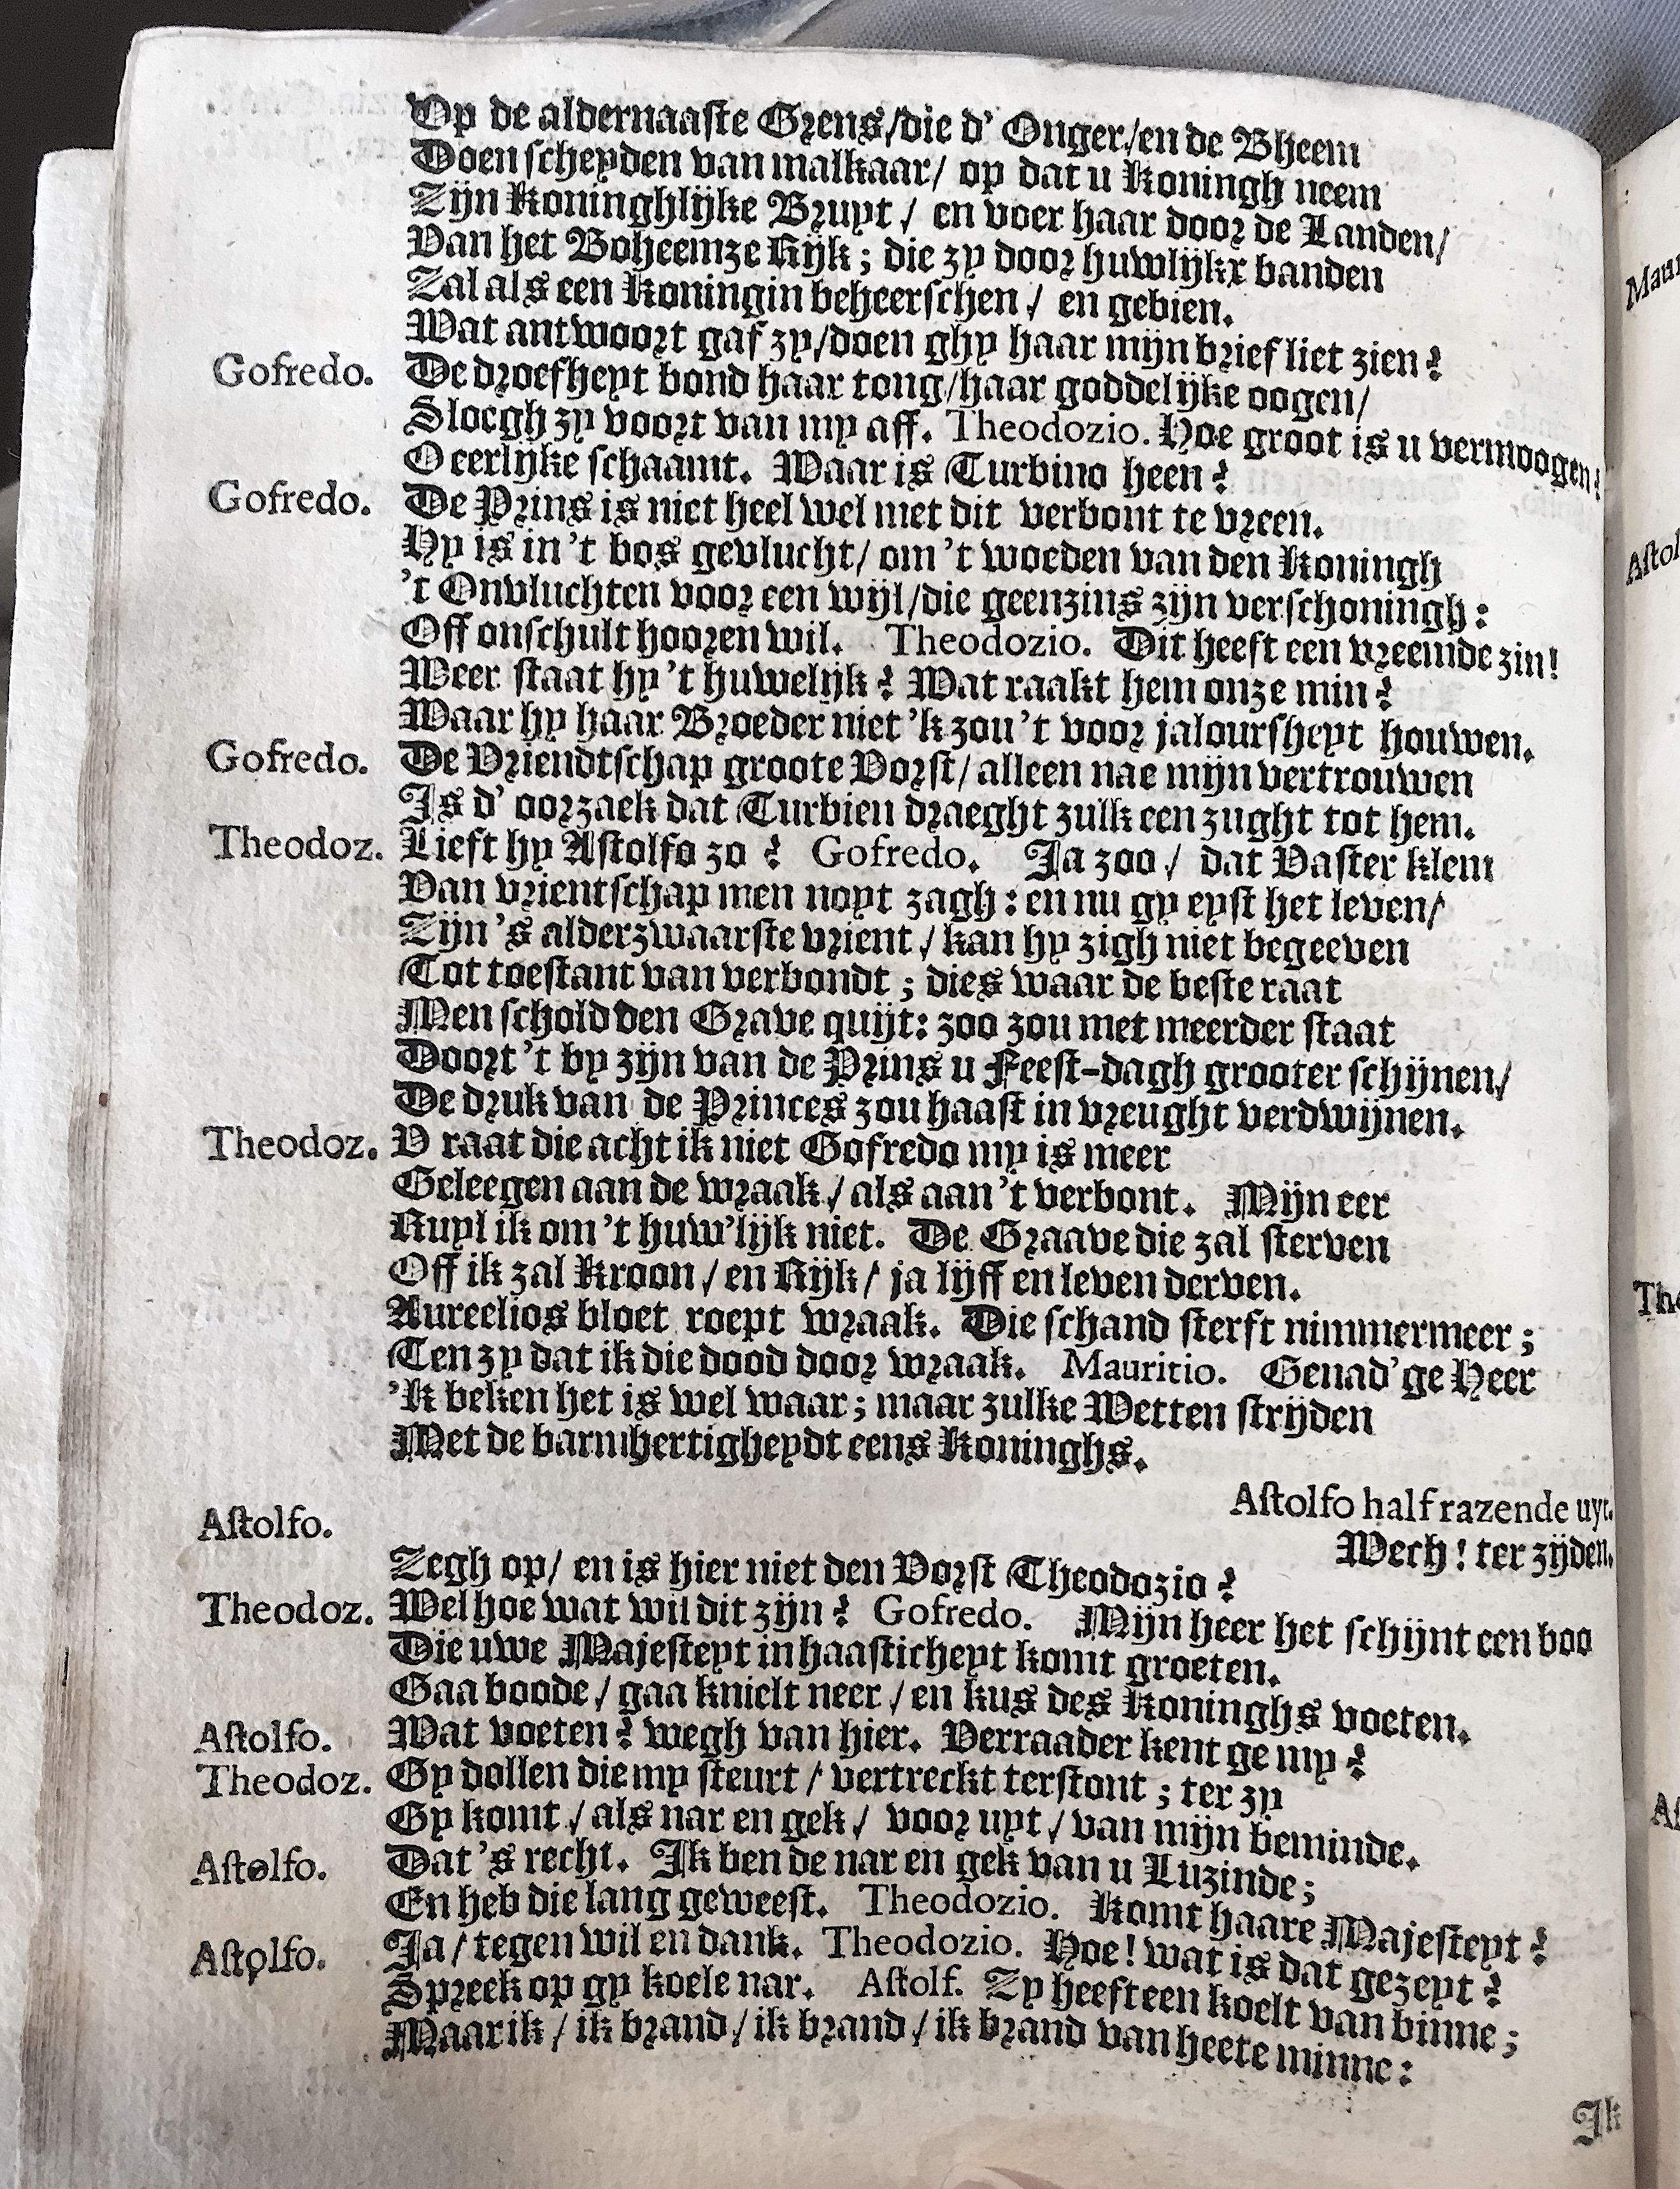 Op de aldernaaste Grens/die d' Onger/en de Bheem
Doen scheyden van malkaar/ op dat u Koningh neem
Zijn Koninghlijke Bruyt / en voer haar door de Landen/
Van het Boheemze Rijk; die zy door huwlijkx banden
Zal als een Koningin beheerschen / en gebien.
Wat antwoort gaf zy/doen ghy haar mijn brief liet zien?
Gofredo. De droefheyt bond haar tong/haar goddelijke oogen/
Sloegh zy voort van my aff. Theodozio. Hoe groot is u vermoogen!
O eerlijke schaamt. Waar is Turbino heen?
Gofredo. De Prins is niet heel wel met dit verbont te vreen.
Hy is in 't bos gevlucht/ om 't woeden van den Koningh
't Onvluchten voor een wijl/die geenzins zijn verschoningh:
Off onschult hooren wil. Theodozio. Dit heeft een vreemde zin!
Weer staat hy 't huwelijk? Wat raakt hem onze min?
Waar hy haar Broeder niet 'k zou 't voor jaloursheyt houwen.
Gofredo. De Vriendtschap groote Vorst/ alleen nae mijn vertrouwen
Is d' oorzaek dat Turbien draeght zulk een zught tot hem.
Theodoz. Lieft hy Aſtolfo zo? Gofredo. Ja zoo / dat Vaster klem
Van vrientschap men noyt zagh: en nu gy eyst het leven/
Zijn 's alderzwaarste vrient / kan hy zigh niet begeeven
Tot toestant van verbondt; dies waar de beste raat
Men schold den Grave quijt: zoo zou met meerder staat
Doort 't by zijn van de Prins u Feest-dagh grooter schijnen/
De druk van de Princes zou haast in vreught verdwijnen.
Theodoz. V raat die acht ik niet Gofredo my is meer
Geleegen aan de wraak / als aan 't verbont. Mijn eer
Ruyl ik om 't huw'lijk niet. De Graave die zal sterven
Off ik zal Kroon / en Rijk / ja lijff en leven derven.
Aureelios bloet roept wraak. Die schand sterft nimmermeer;
Ten zy dat ik die dood door wraak. Mauritio. Genad'ge Heer
'k beken het is wel waar; maar zulke Wetten strijden
Met de barmhertigheydt eens Koninghs.
Aſtolfo half razende uyt.
Aſtolfo. Wech! ter zijden.
Zegh op/ en is hier niet den Vorst Theodozio?
Theodoz. Wel hoe wat wil dit zijn? Gofredo. Mijn heer het schijnt een boo
Die uwe Majesteyt in haasticheyt komt groeten.
Gaa boode / gaa knielt neer / en kus des Koninghs voeten.
Aſtolfo. Wat voeten? wegh van hier. Verraader kent ge my?
Theodoz. Gy dollen die my steurt / vertreckt terstont; ter zy
Gy komt / als nar en gek / voor uyt / van mijn beminde.
Aſtolfo. Dat 's recht. Ik ben de nar en gek van u Luzinde;
En heb die lang geweest. Theodozio. Komt haare Majesteyt?
Aſtolfo. Ja / tegen wil en dank. Theodozio. Hoe! wat is dat gezeyt?
Spreek op gy koele nar. Aſtolf. Zy heeft een koelt van binne;
Maar ik / ik brand / ik brand / ik brand van heete minne:
Ik
Maur
Aſtol
The
Aſ